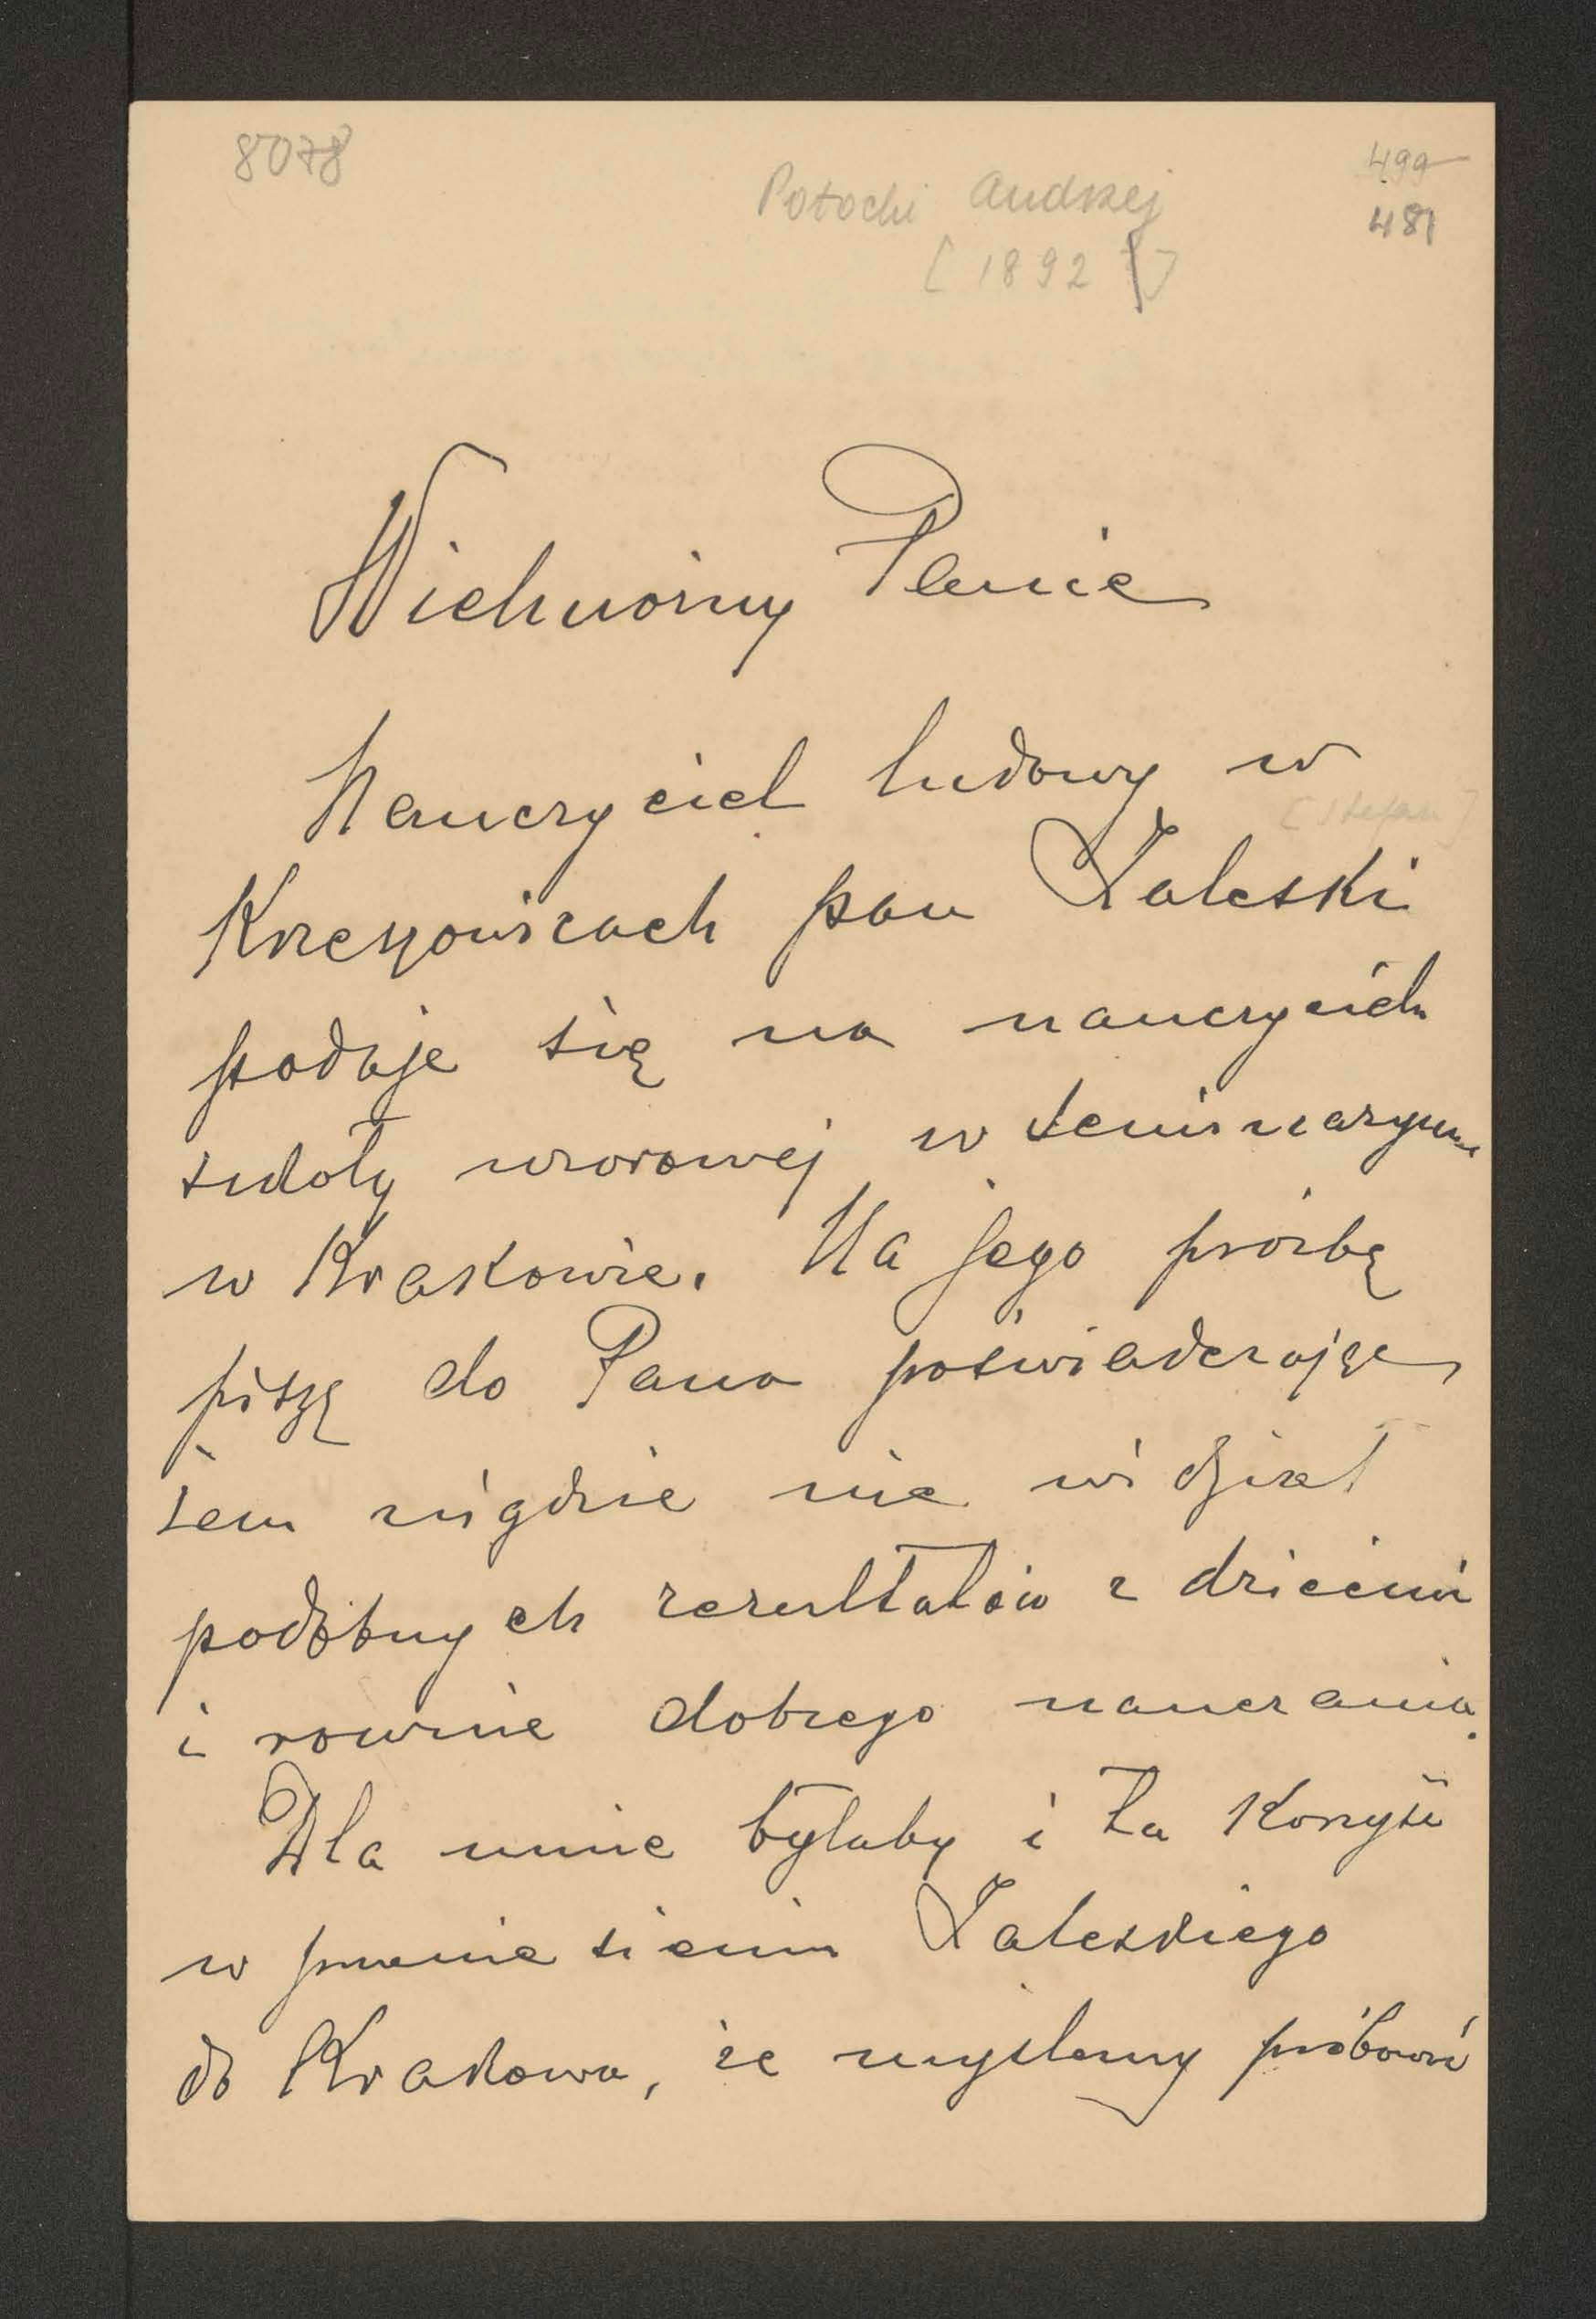 8078
499
Potocki Andrzej
481
[1892]
Wielmożny Panie
Nauczyciel ludowy w
[Stefan]
Krzeszowicach pan Zaleski
podaje się na nauczyciela
szkoły wzorowej w Seminaryum
w Krakowie. Na jego prośbę
piszę do Pana poświadczając,
żem nigdzie nie widział
podobnych rezultatów z dziećmi
i równie dobrego nauczania.
Dla mnie byłaby i ta korzyść
w przeniesieniu Zaleskiego
do Krakowa, że myślemy próbować